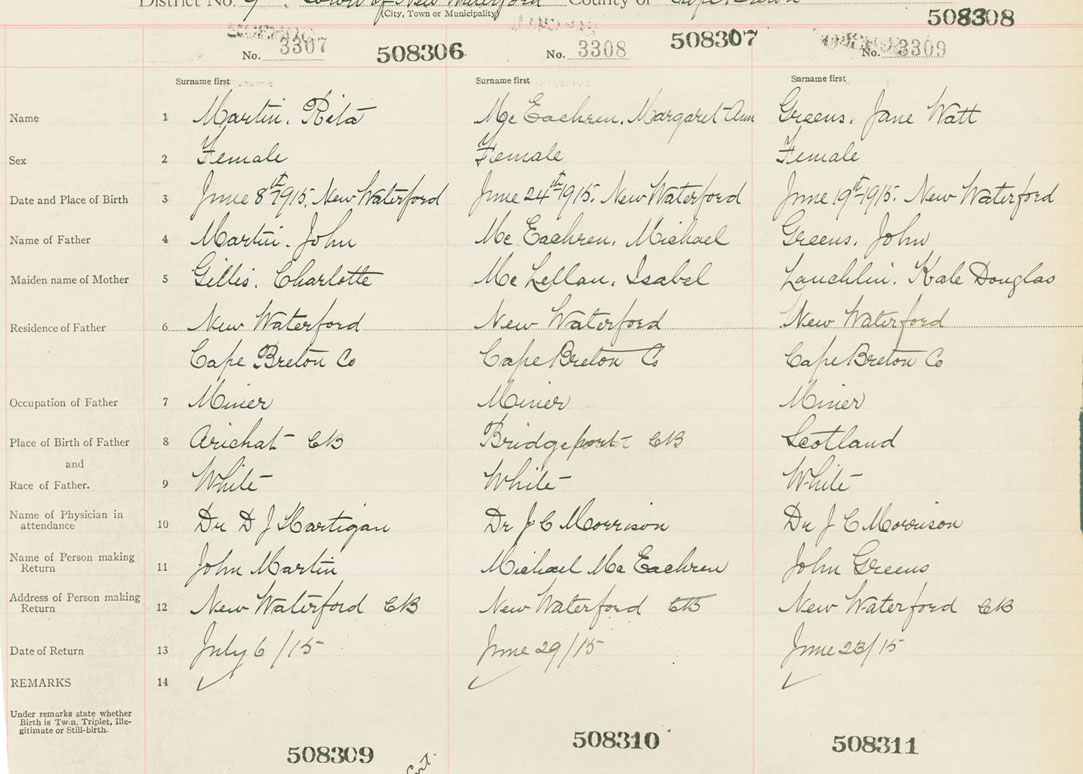 District No. 9. Town of New Waterford County of Cape Breton
(City, Town or Municipality)
508308
No. 3307 508306 No. 3308 508307 No. 3309
Surname first Surname first Surname first
Name 1 Martin. Rita Mc Eachren. Margaret Ann Greens. Jane Watt
Sex 2 Female Female Female
Date and Place of Birth 3 June 8th 1915. New Waterford June 24th 1915. New Waterford June 19th 1915. New Waterford
Name of Father 4 Martin. John Mc Eachren. Michael Greens. John
Maiden name of Mother 5 Gillis. Charlotte Mc Lellan. Isabel Lauchlin. Kate Douglas
Residence of Father 6 New Waterford New Waterford New Waterford
Cape Breton Co Cape Breton Co Cape Breton Co
Occupation of Father 7 Miner Miner Miner
Place of Birth of Father 8 Arichat CB Bridgeport CB Scotland
and
Race of Father. 9 White White White
Name of Physician in attendance 10 Dr D J Hartigan Dr J C Morrison Dr J C Morrison
Name of Person making Return 11 John Martin Michael Mc Eachren John Greens
Address of Person making Return 12 New Waterford CB New Waterford CB New Waterford CB
Date of Return 13 July 6/15 June 29/15 June 23/15
REMARKS 14
Under remarks state whether
Birth is Twin, Triplet, Ille-
gitimate or Still-birth.
508309 508310 508311
Cert.